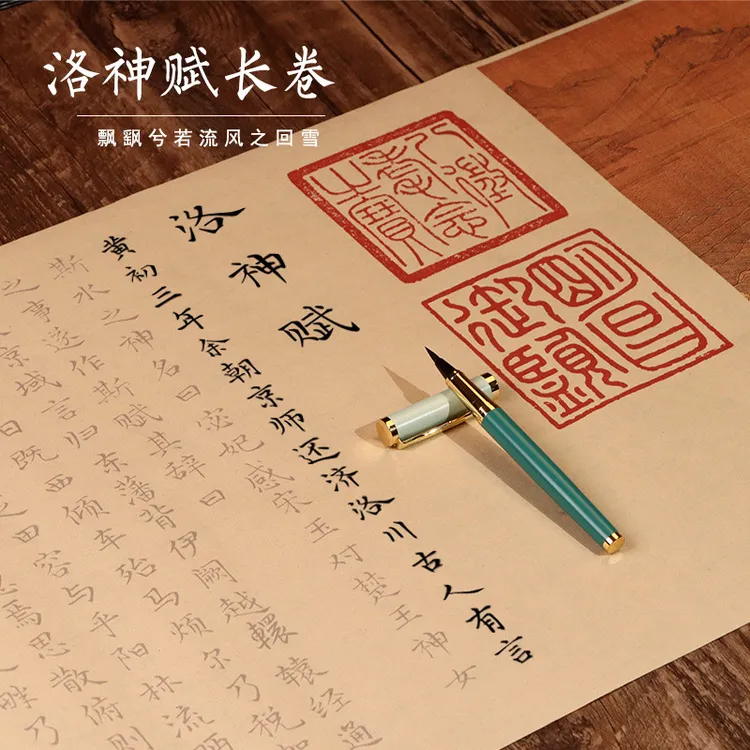 洛神赋长卷
飘飖兮若流风之回雪
八徵耄念之寶
洛神赋
黄初三年余朝京师还济洛川古人有言
斯水之神名曰宓妃感宋玉对楚王神女
之事遂作斯赋其辞曰
京域言归东藩背伊阙越轘辕经通
日既西倾车殆马烦尔乃税
田容与乎阳林流
焉思散俯则
畔乃